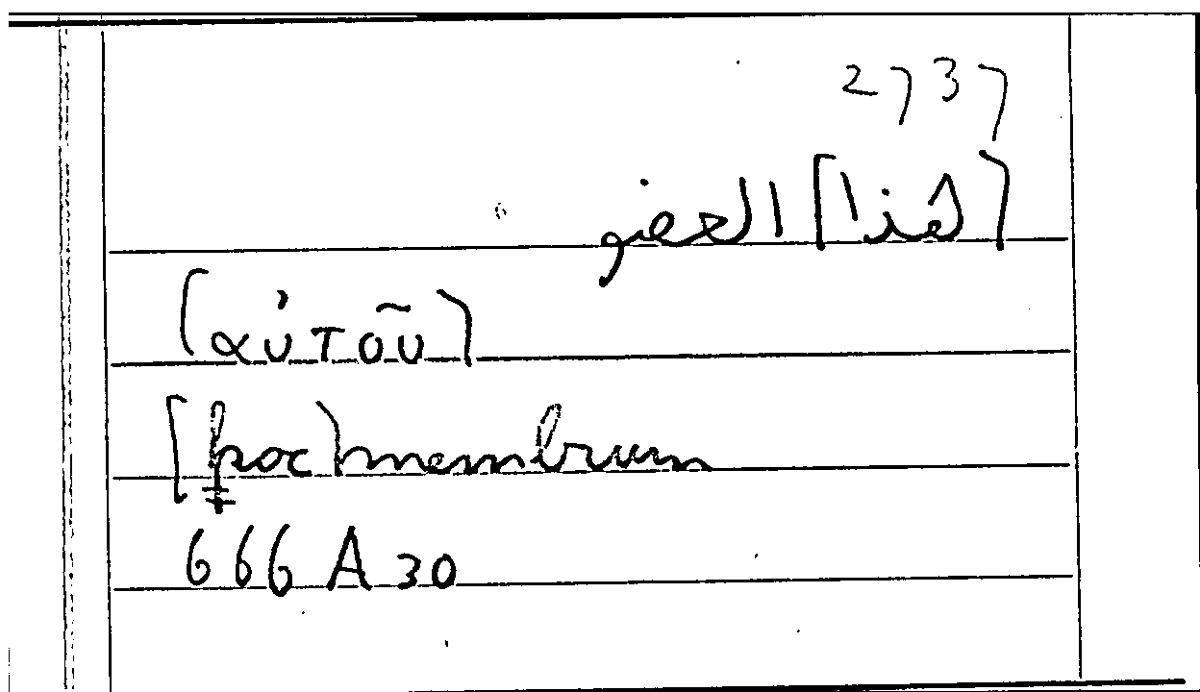 2737
[هذا] العضو
[αὐτοῦ]
[hoc] membrum
666 A 30